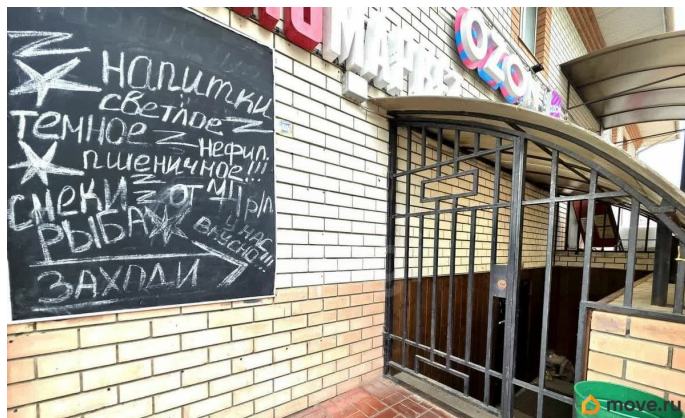 НАПИТКИ
СВЕТЛОЕ
ТЕМНОЕ НЕФИЛ
ПШЕНИЧНОЕ!!!
СНЕКИ ОТ
РЫБА У НАС
ВКУСНО!!!
ЗАХОДИ
МАГАЗ
OZON
move.ru